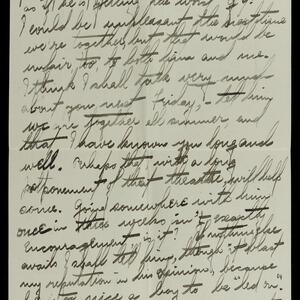 as if he's
I could be unpleasant the next time
we're together, but that would be
unfair, to both him and me.
I think I shall talk very much
about you next Friday, - tell him
we are together all summer and
that I have known you long and
well. Perhaps that with a long
postponement of that theatre, will help
some. Going somewhere with him
once in three weeks isn't exactly
encouragement, is it? If nothing else
avails I shall tell him, though it blast
my reputation in his opinion, because
he's too nice a boy to be led on."